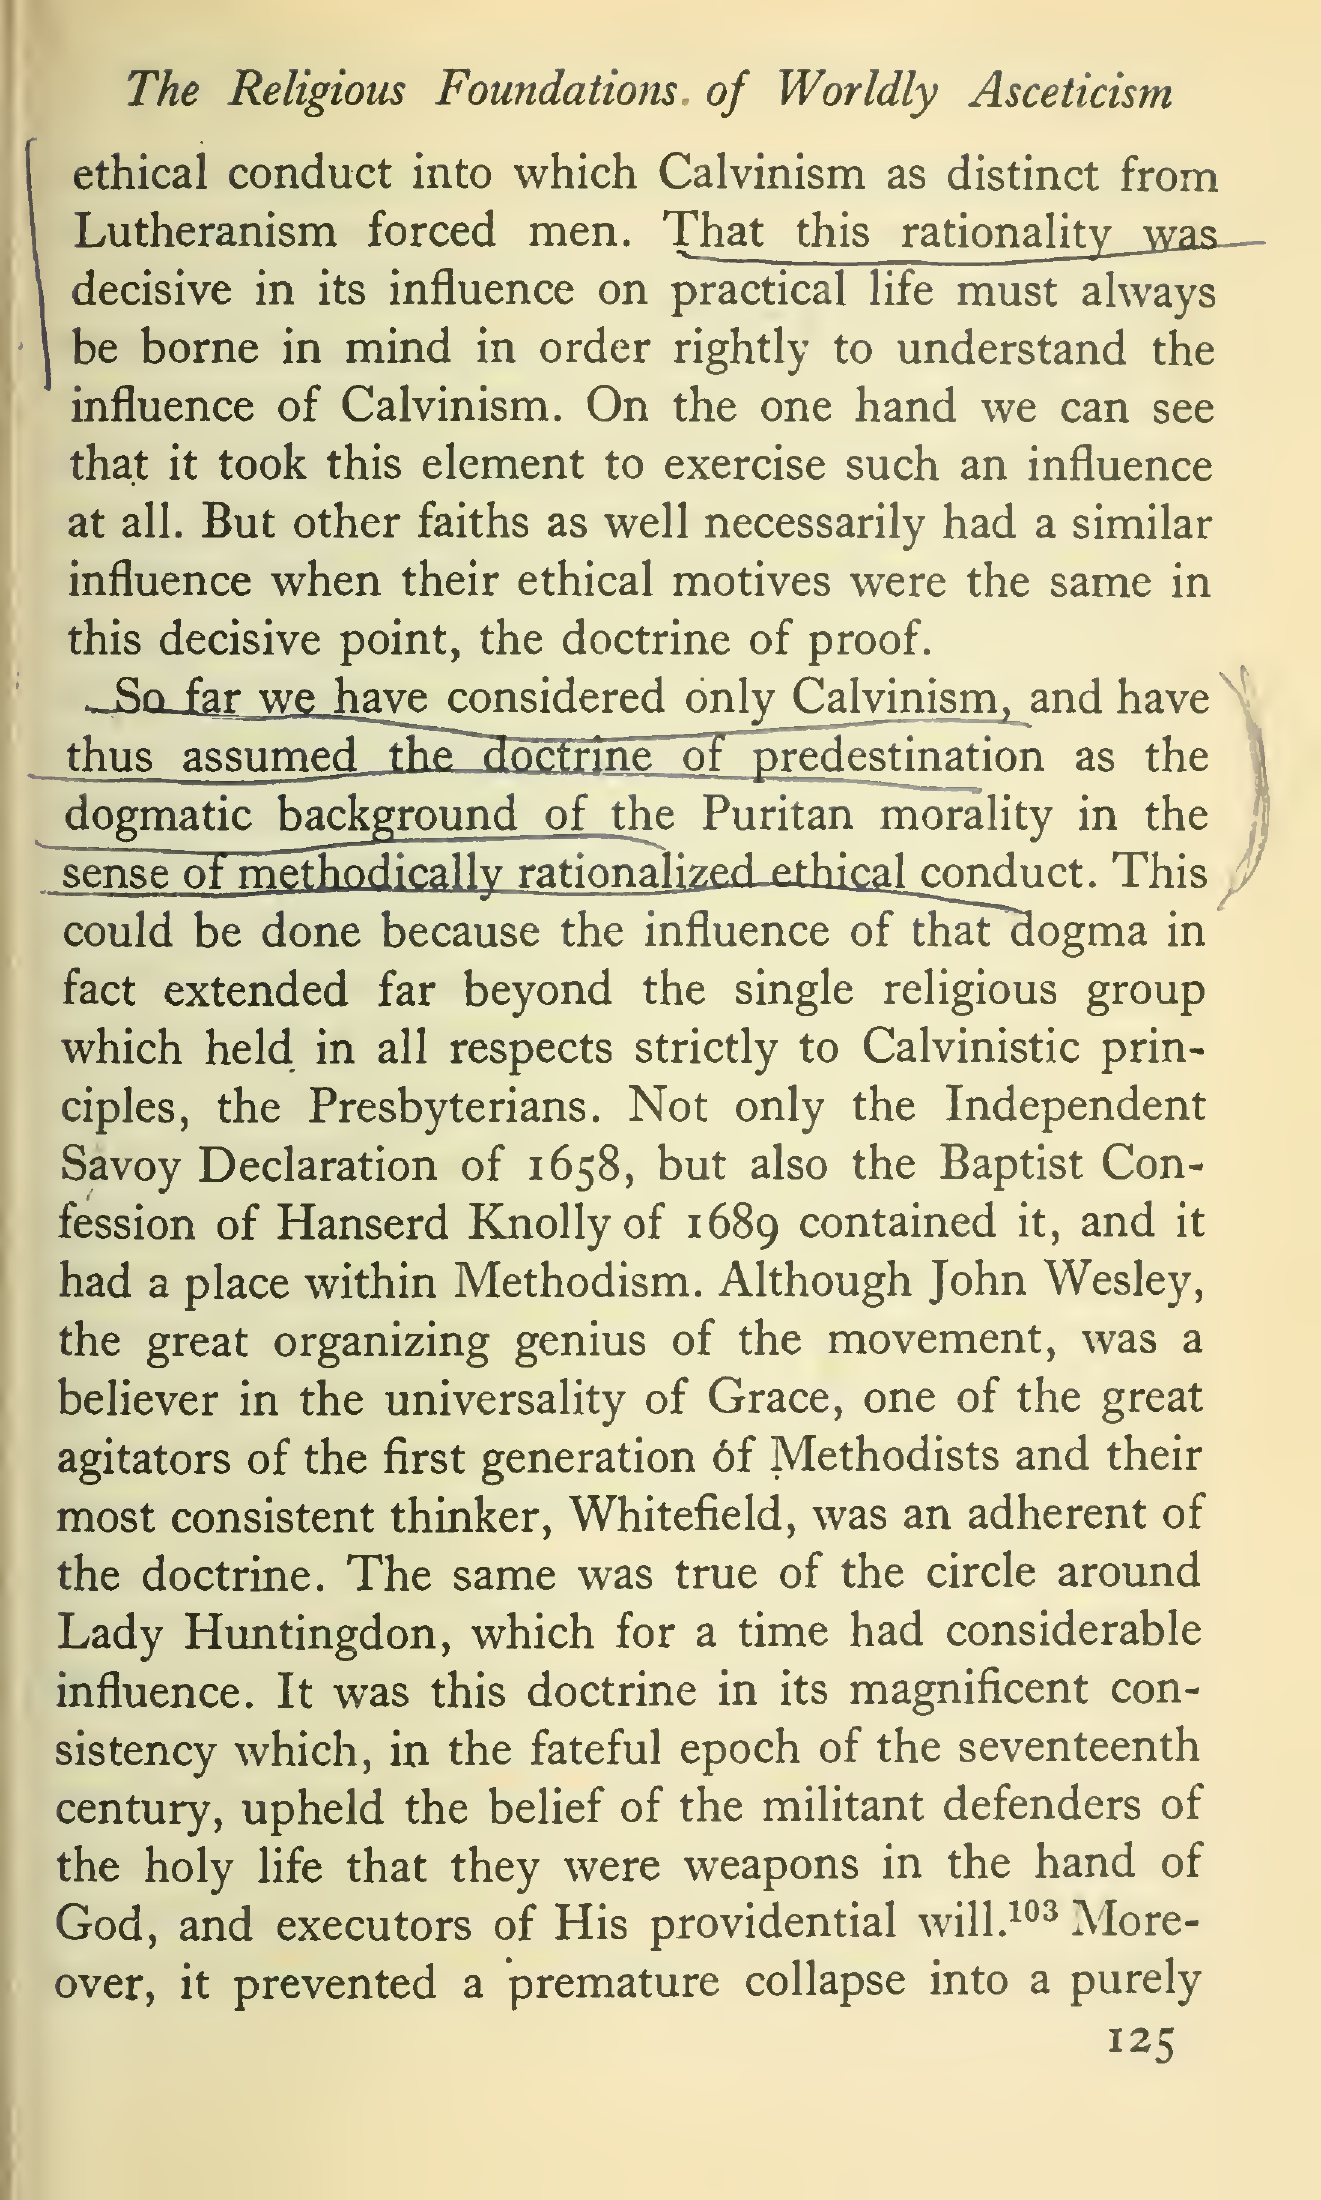 The Religious Foundations of Worldly Asceticism
ethical conduct into which Calvinism as distinct from
Lutheranism forced men. That this rationality was
decisive in its influence on practical life must always
be borne in mind in order rightly to understand the
influence of Calvinism. On the one hand we can see
that it took this element to exercise such an influence
at all. But other faiths as well necessarily had a similar
influence when their ethical motives were the same in
this decisive point, the doctrine of proof.
So far we have considered only Calvinism, and have
thus assumed the doctrine of predestination as the
dogmatic background of the Puritan morality in the
sense of methodically rationalized ethical conduct. This
could be done because the influence of that dogma in
fact extended far beyond the single religious group
which held in all respects strictly to Calvinistic prin-
ciples, the Presbyterians. Not only the Independent
Savoy Declaration of 1658, but also the Baptist Con-
fession of Hanserd Knolly of 1689 contained it, and it
had a place within Methodism. Although John Wesley,
the great organizing genius of the movement, was a
believer in the universality of Grace, one of the great
agitators of the first generation of Methodists and their
most consistent thinker, Whitefield, was an adherent of
the doctrine. The same was true of the circle around
Lady Huntingdon, which for a time had considerable
influence. It was this doctrine in its magnificent con-
sistency which, in the fateful epoch of the seventeenth
century, upheld the belief of the militant defenders of
the holy life that they were weapons in the hand of
God, and executors of His providential will.¹⁰³ More-
over, it prevented a premature collapse into a purely
125